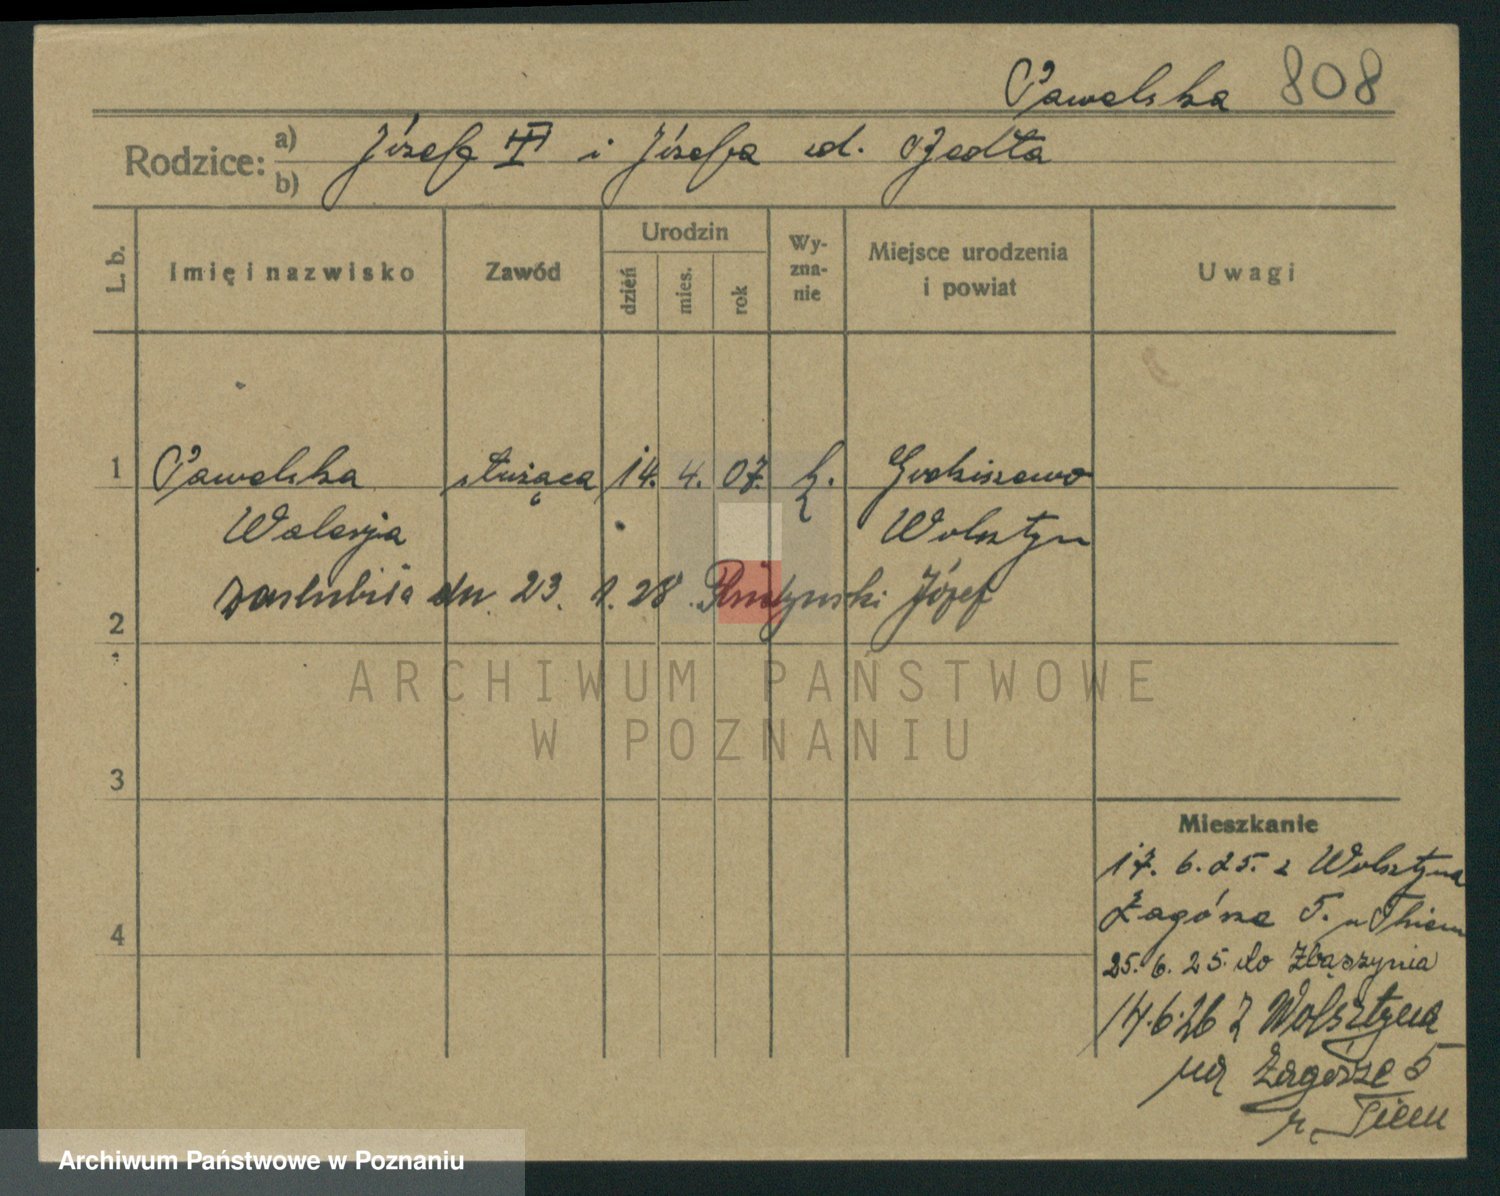 Pawelska 808
Rodzice: a) b) Józef i Józefa
L. b. Imię i nazwisko Zawód Urodzin dzień mies. rok Wy-zna-nie Miejsce urodzenia i powiat Uwagi
1 Pawelska służąca 14. 4. 07. k. Godziszewo
Walerja Wolsztyn
zaślubiła dn. 23. 1. 28 Józef
2
ARCHIWUM PAŃSTWOWE
W POZNANIU
3
Mieszkanie
17. 6. 25. z Wolsztyna
Zagórze 5.
4
25. 6. 25. do Zbąszynia
14.6.26 z Wolsztyna
na Zagórze 5
Archiwum Państwowe w Poznaniu